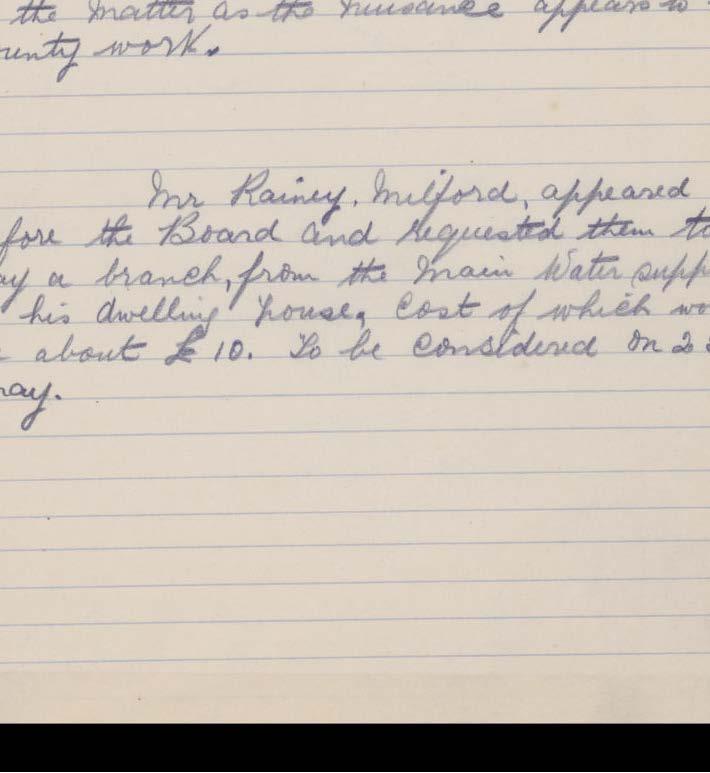 the matter as the nuisance appears to
unty work.
Mr Rainey, Milford, appeared
fore the Board and requested them to
ay a branch, from the Main Water supp
his dwelling house, Cost of which wo
about £10. To be Considered on 2
may.